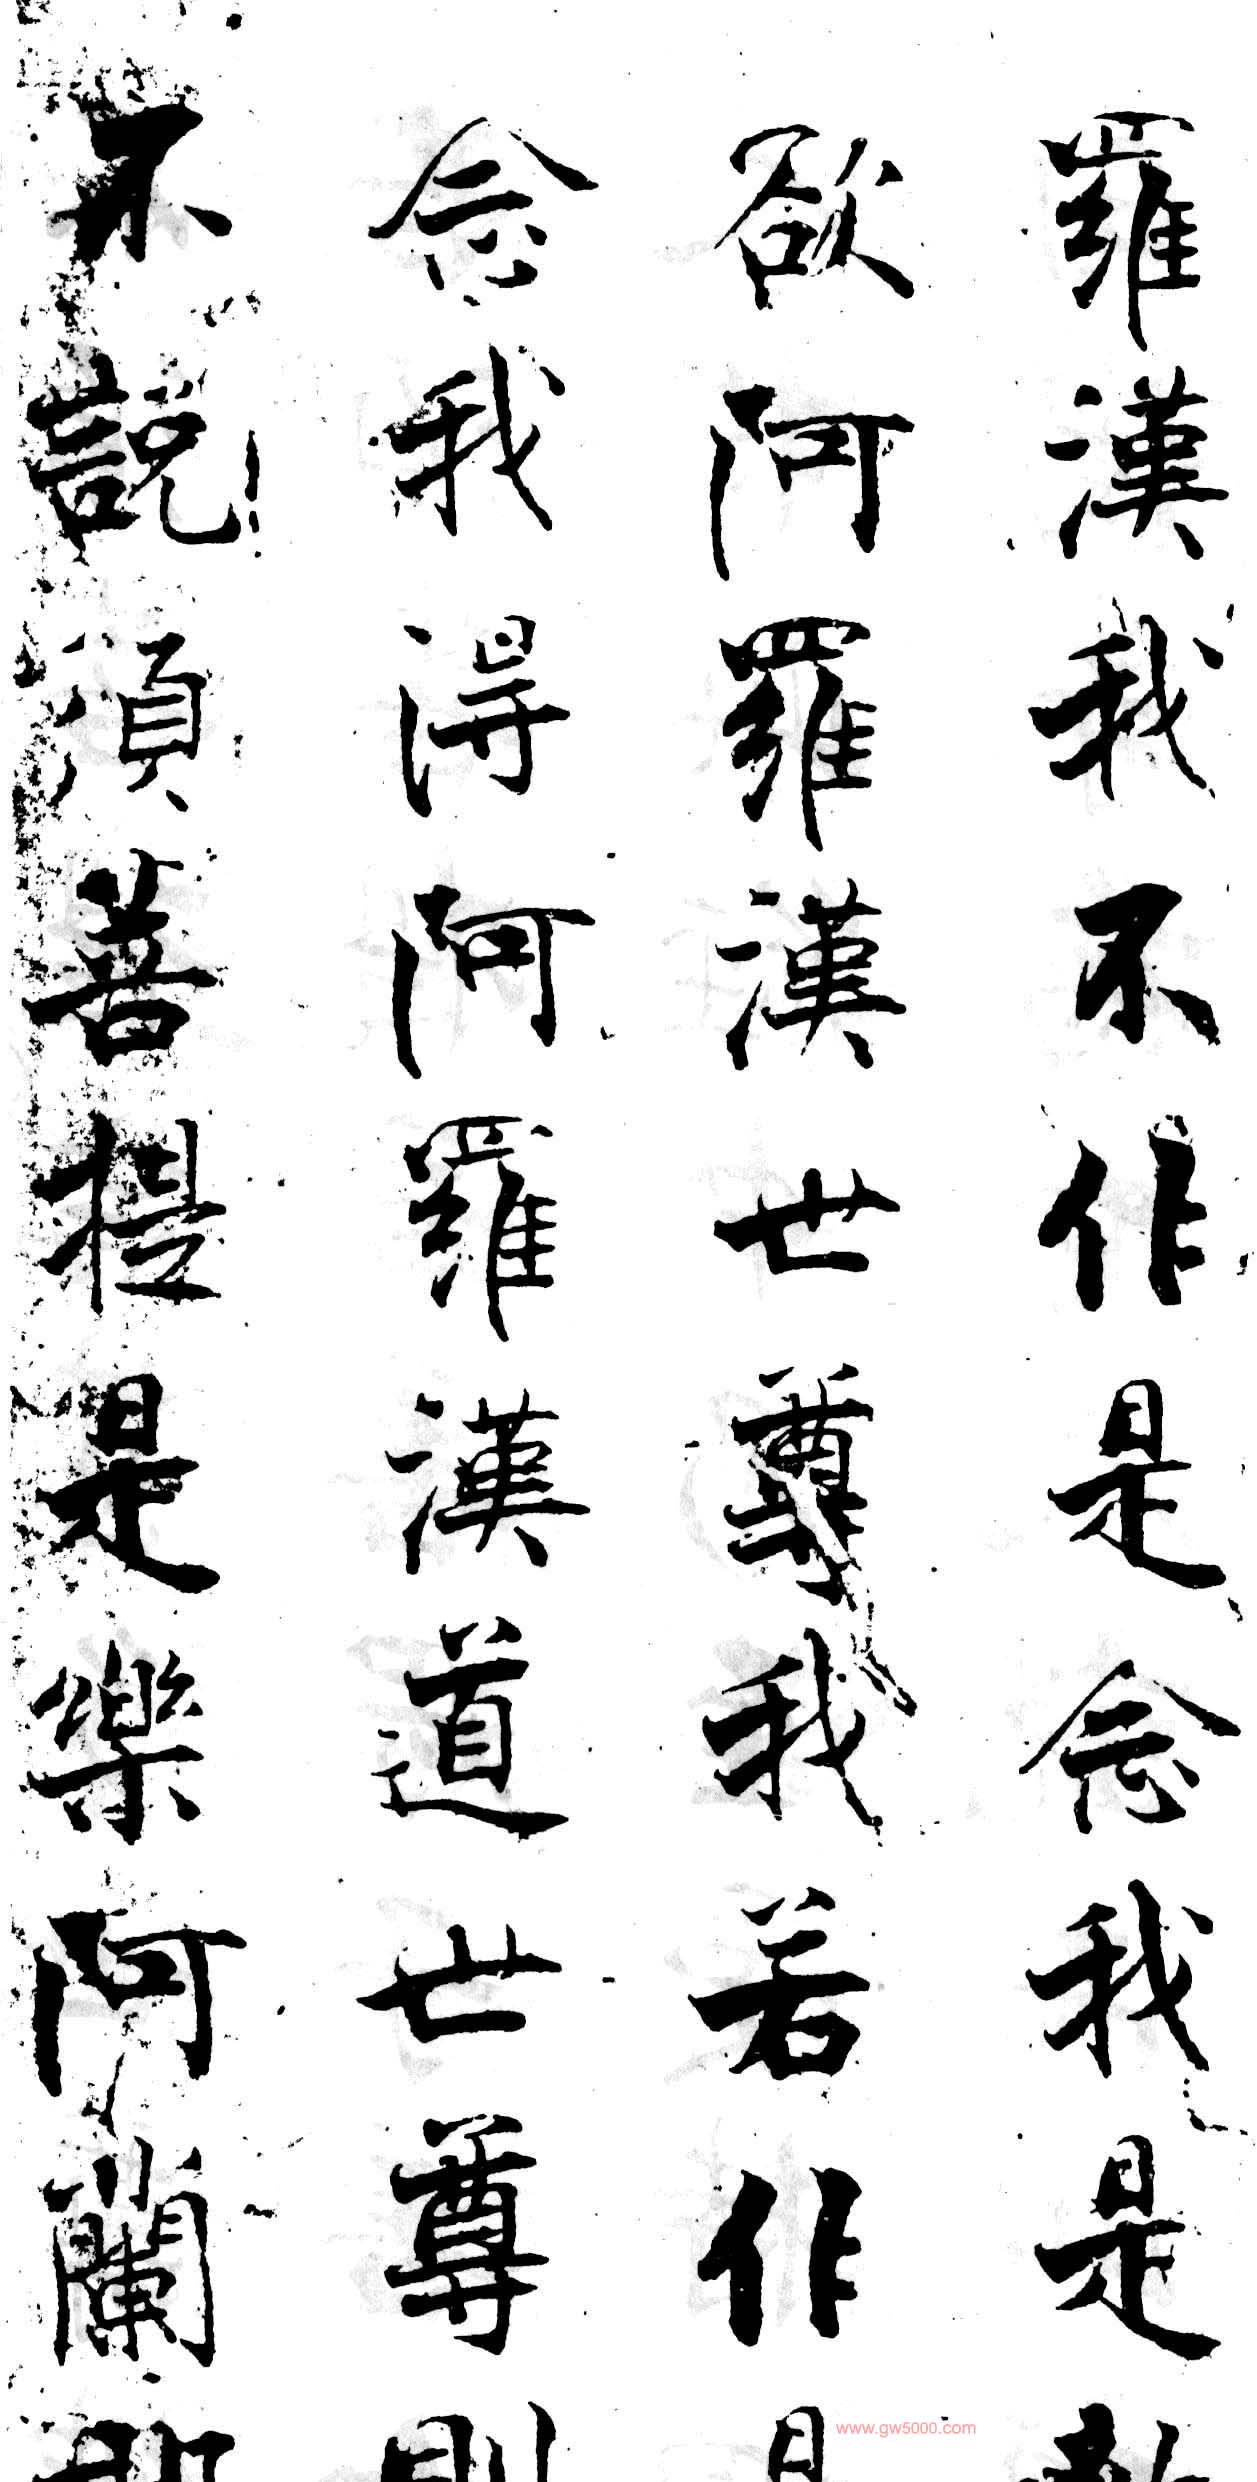 羅漢我不作是念我是
欲阿羅漢世尊我若作
念我得阿羅漢道世尊
不說須菩提是樂阿蘭
www.gw5000.com